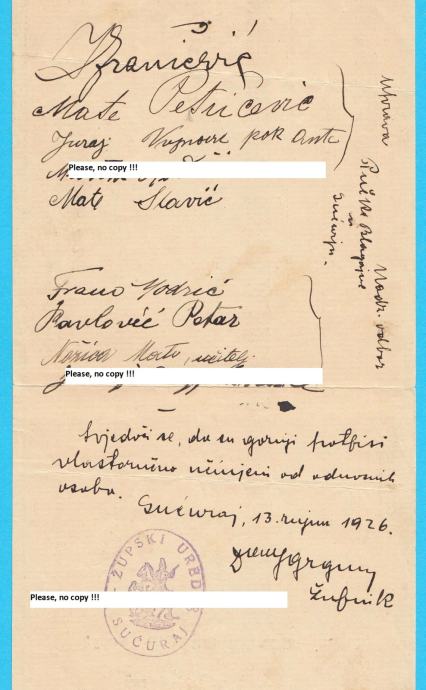 Mate Petričević
Juraj Vujnović pok Ante
Please, no copy !!!
Mate Slavić
Uprava
Pučke Blagajne
u
Sućurju.
Nadz. odbor
Frano Modrić
Pavlović Petar
Mate, učitelj
Please, no copy !!!
Svjedoči se, da su gornji potpisi
vlastoručno učinjeni od odnosnih
osoba.
Sućuraj, 13. rujna 1926.
Župnik
ŽUPSKI URED
SUĆURAJ
Please, no copy !!!